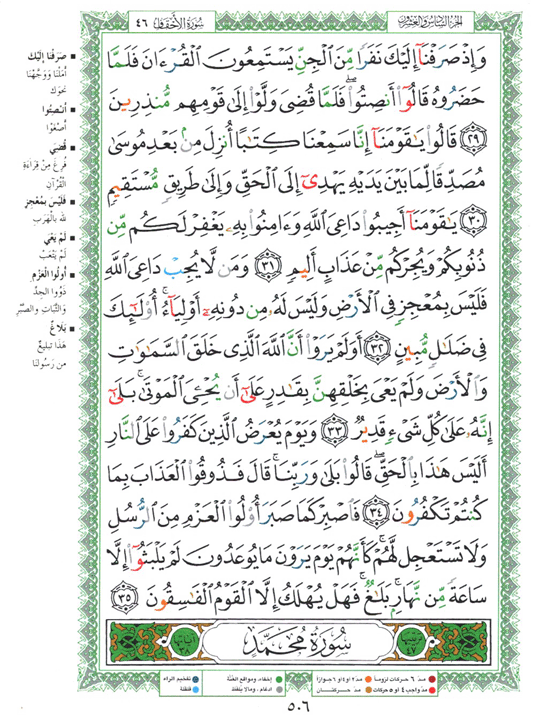 الجزء السادس والعشرون
سورة الأحقاف ٤٦
وَإِذْ صَرَفْنَآ إِلَيْكَ نَفَرًا مِّنَ ٱلْجِنِّ يَسْتَمِعُونَ ٱلْقُرْءَانَ فَلَمَّا
حَضَرُوهُ قَالُوٓا۟ أَنصِتُوا۟ ۖ فَلَمَّا قُضِىَ وَلَّوْا۟ إِلَىٰ قَوْمِهِم مُّنذِرِينَ
٢٩ قَالُوا۟ يَـٰقَوْمَنَآ إِنَّا سَمِعْنَا كِتَـٰبًا أُنزِلَ مِنۢ بَعْدِ مُوسَىٰ
مُصَدِّقًا لِّمَا بَيْنَ يَدَيْهِ يَهْدِىٓ إِلَى ٱلْحَقِّ وَإِلَىٰ طَرِيقٍ مُّسْتَقِيمٍ
٣٠ يَـٰقَوْمَنَآ أَجِيبُوا۟ دَاعِىَ ٱللَّهِ وَءَامِنُوا۟ بِهِۦ يَغْفِرْ لَكُم مِّن
ذُنُوبِكُمْ وَيُجِرْكُم مِّنْ عَذَابٍ أَلِيمٍ ٣١ وَمَن لَّا يُجِبْ دَاعِىَ ٱللَّهِ
فَلَيْسَ بِمُعْجِزٍ فِى ٱلْأَرْضِ وَلَيْسَ لَهُۥ مِن دُونِهِۦٓ أَوْلِيَآءُ ۚ أُو۟لَـٰٓئِكَ
فِى ضَلَـٰلٍ مُّبِينٍ ٣٢ أَوَلَمْ يَرَوْا۟ أَنَّ ٱللَّهَ ٱلَّذِى خَلَقَ ٱلسَّمَـٰوَٰتِ
وَٱلْأَرْضَ وَلَمْ يَعْىَ بِخَلْقِهِنَّ بِقَـٰدِرٍ عَلَىٰٓ أَن يُحْـِۧىَ ٱلْمَوْتَىٰ ۚ بَلَىٰٓ
إِنَّهُۥ عَلَىٰ كُلِّ شَىْءٍ قَدِيرٌ ٣٣ وَيَوْمَ يُعْرَضُ ٱلَّذِينَ كَفَرُوا۟ عَلَى ٱلنَّارِ
أَلَيْسَ هَـٰذَا بِٱلْحَقِّ ۖ قَالُوا۟ بَلَىٰ وَرَبِّنَا ۚ قَالَ فَذُوقُوا۟ ٱلْعَذَابَ بِمَا
كُنتُمْ تَكْفُرُونَ ٣٤ فَٱصْبِرْ كَمَا صَبَرَ أُو۟لُوا۟ ٱلْعَزْمِ مِنَ ٱلرُّسُلِ
وَلَا تَسْتَعْجِل لَّهُمْ ۚ كَأَنَّهُمْ يَوْمَ يَرَوْنَ مَا يُوعَدُونَ لَمْ يَلْبَثُوٓا۟ إِلَّا
سَاعَةً مِّن نَّهَارٍۭ ۚ بَلَـٰغٌ ۚ فَهَلْ يُهْلَكُ إِلَّا ٱلْقَوْمُ ٱلْفَـٰسِقُونَ ٣٥
سورة محمد
آياتها ٣٨
■ صَرَفْنَا إِلَيْكَ
أَمَلْنَا وَوَجَّهْنَا
نَحْوَكَ
■ أَنْصِتُوا
أَصْغُوا
■ قُضِيَ
فُرِغَ مِنْ قِرَاءَةِ
الْقُرْآنِ
■ فَلَيْسَ بِمُعْجِزٍ
لله بِالْهَرَبِ
■ لَمْ يَعْيَ
لَمْ يَتْعَبْ
■ أُولُوا الْعَزْمِ
ذَوُو الْجِدِّ
وَالثَّبَاتِ وَالصَّبْرِ
■ بَلَاغٌ
هَذَا تَبْلِيغٌ
مِنْ رَسُولِنَا
مدّ ٦ حركات لزوماً ● مدّ ٢ أو ٤ أو ٦ جوازاً
مدّ واجب ٤ أو ٥ حركات ● مدّ حركتان
إخفاء، ومواقع الغُنَّة
ادغام، وما لا يُلفَظ
تفخيم الراء
قلقلة
٥٠٦